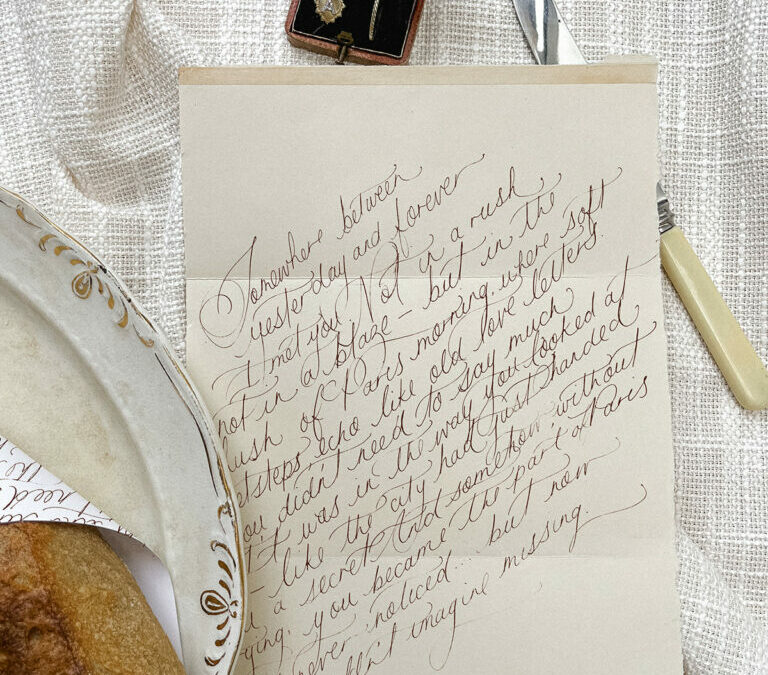 Somewhere between
yesterday and forever
I met you. Not in a rush
not in a blaze – but in the
hush of Paris morning, where soft
etsteps echo like old love letters.
ou didn't need to say much
It was in the way you looked at
– like the city had just handed
a secret. And somehow, without
ying, you became the part of Paris
never noticed... but now
dn't imagine missing.
need